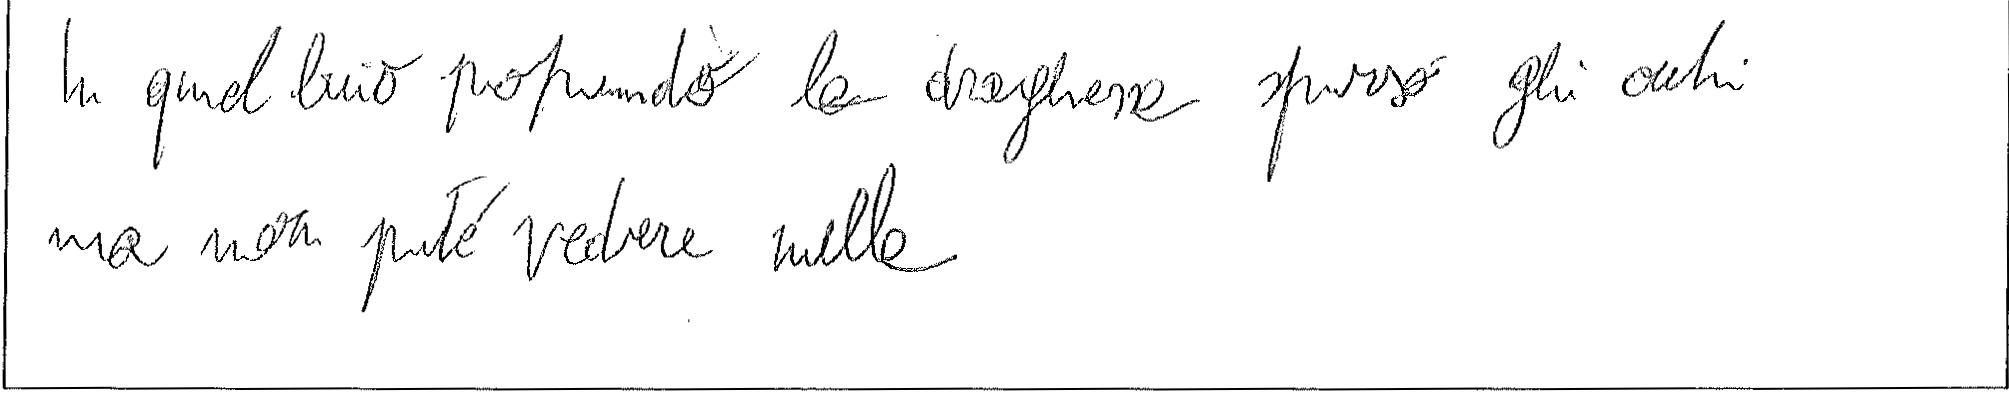 In quel buio profondo la draghessa spinse gli occhi
ma non poté vedere nulla